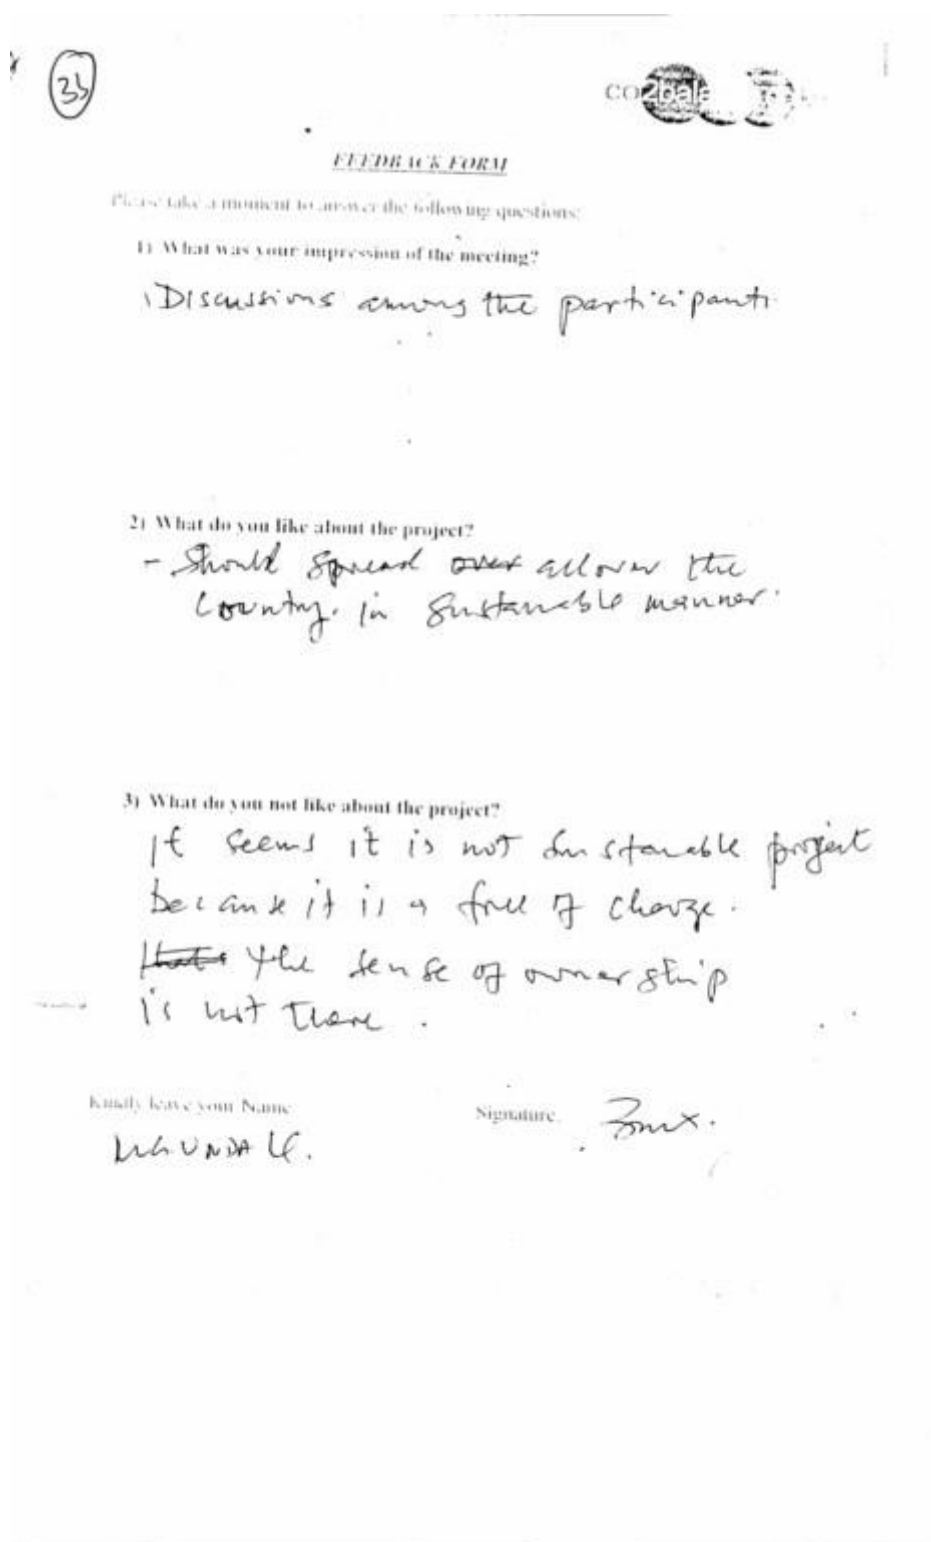 35
CO2bala
FEEDBACK FORM
Please take a moment to answer the following questions:
1) What was your impression of the meeting?
Discussions among the participants
2) What do you like about the project?
- Should spread over all over the
Country. in Sustanable manner.
3) What do you not like about the project?
It seems it is not Sustanable project
because it is a free of charge.
that the sense of ownership
is not there.
Kindly leave your Name
Signature